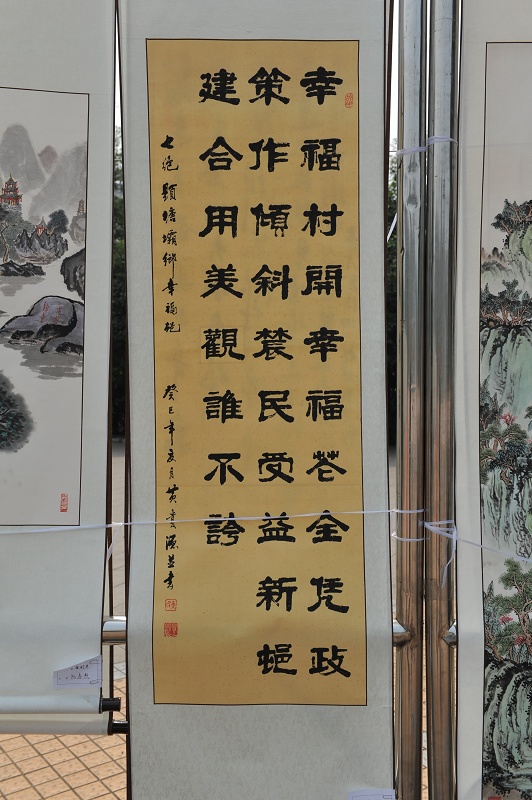 幸福村開幸福花全凭政
策作傾斜農民受益新邨
建合用美觀誰不誇
七絕 題塘壩鄉幸福邨 癸巳年夏月黄源並書